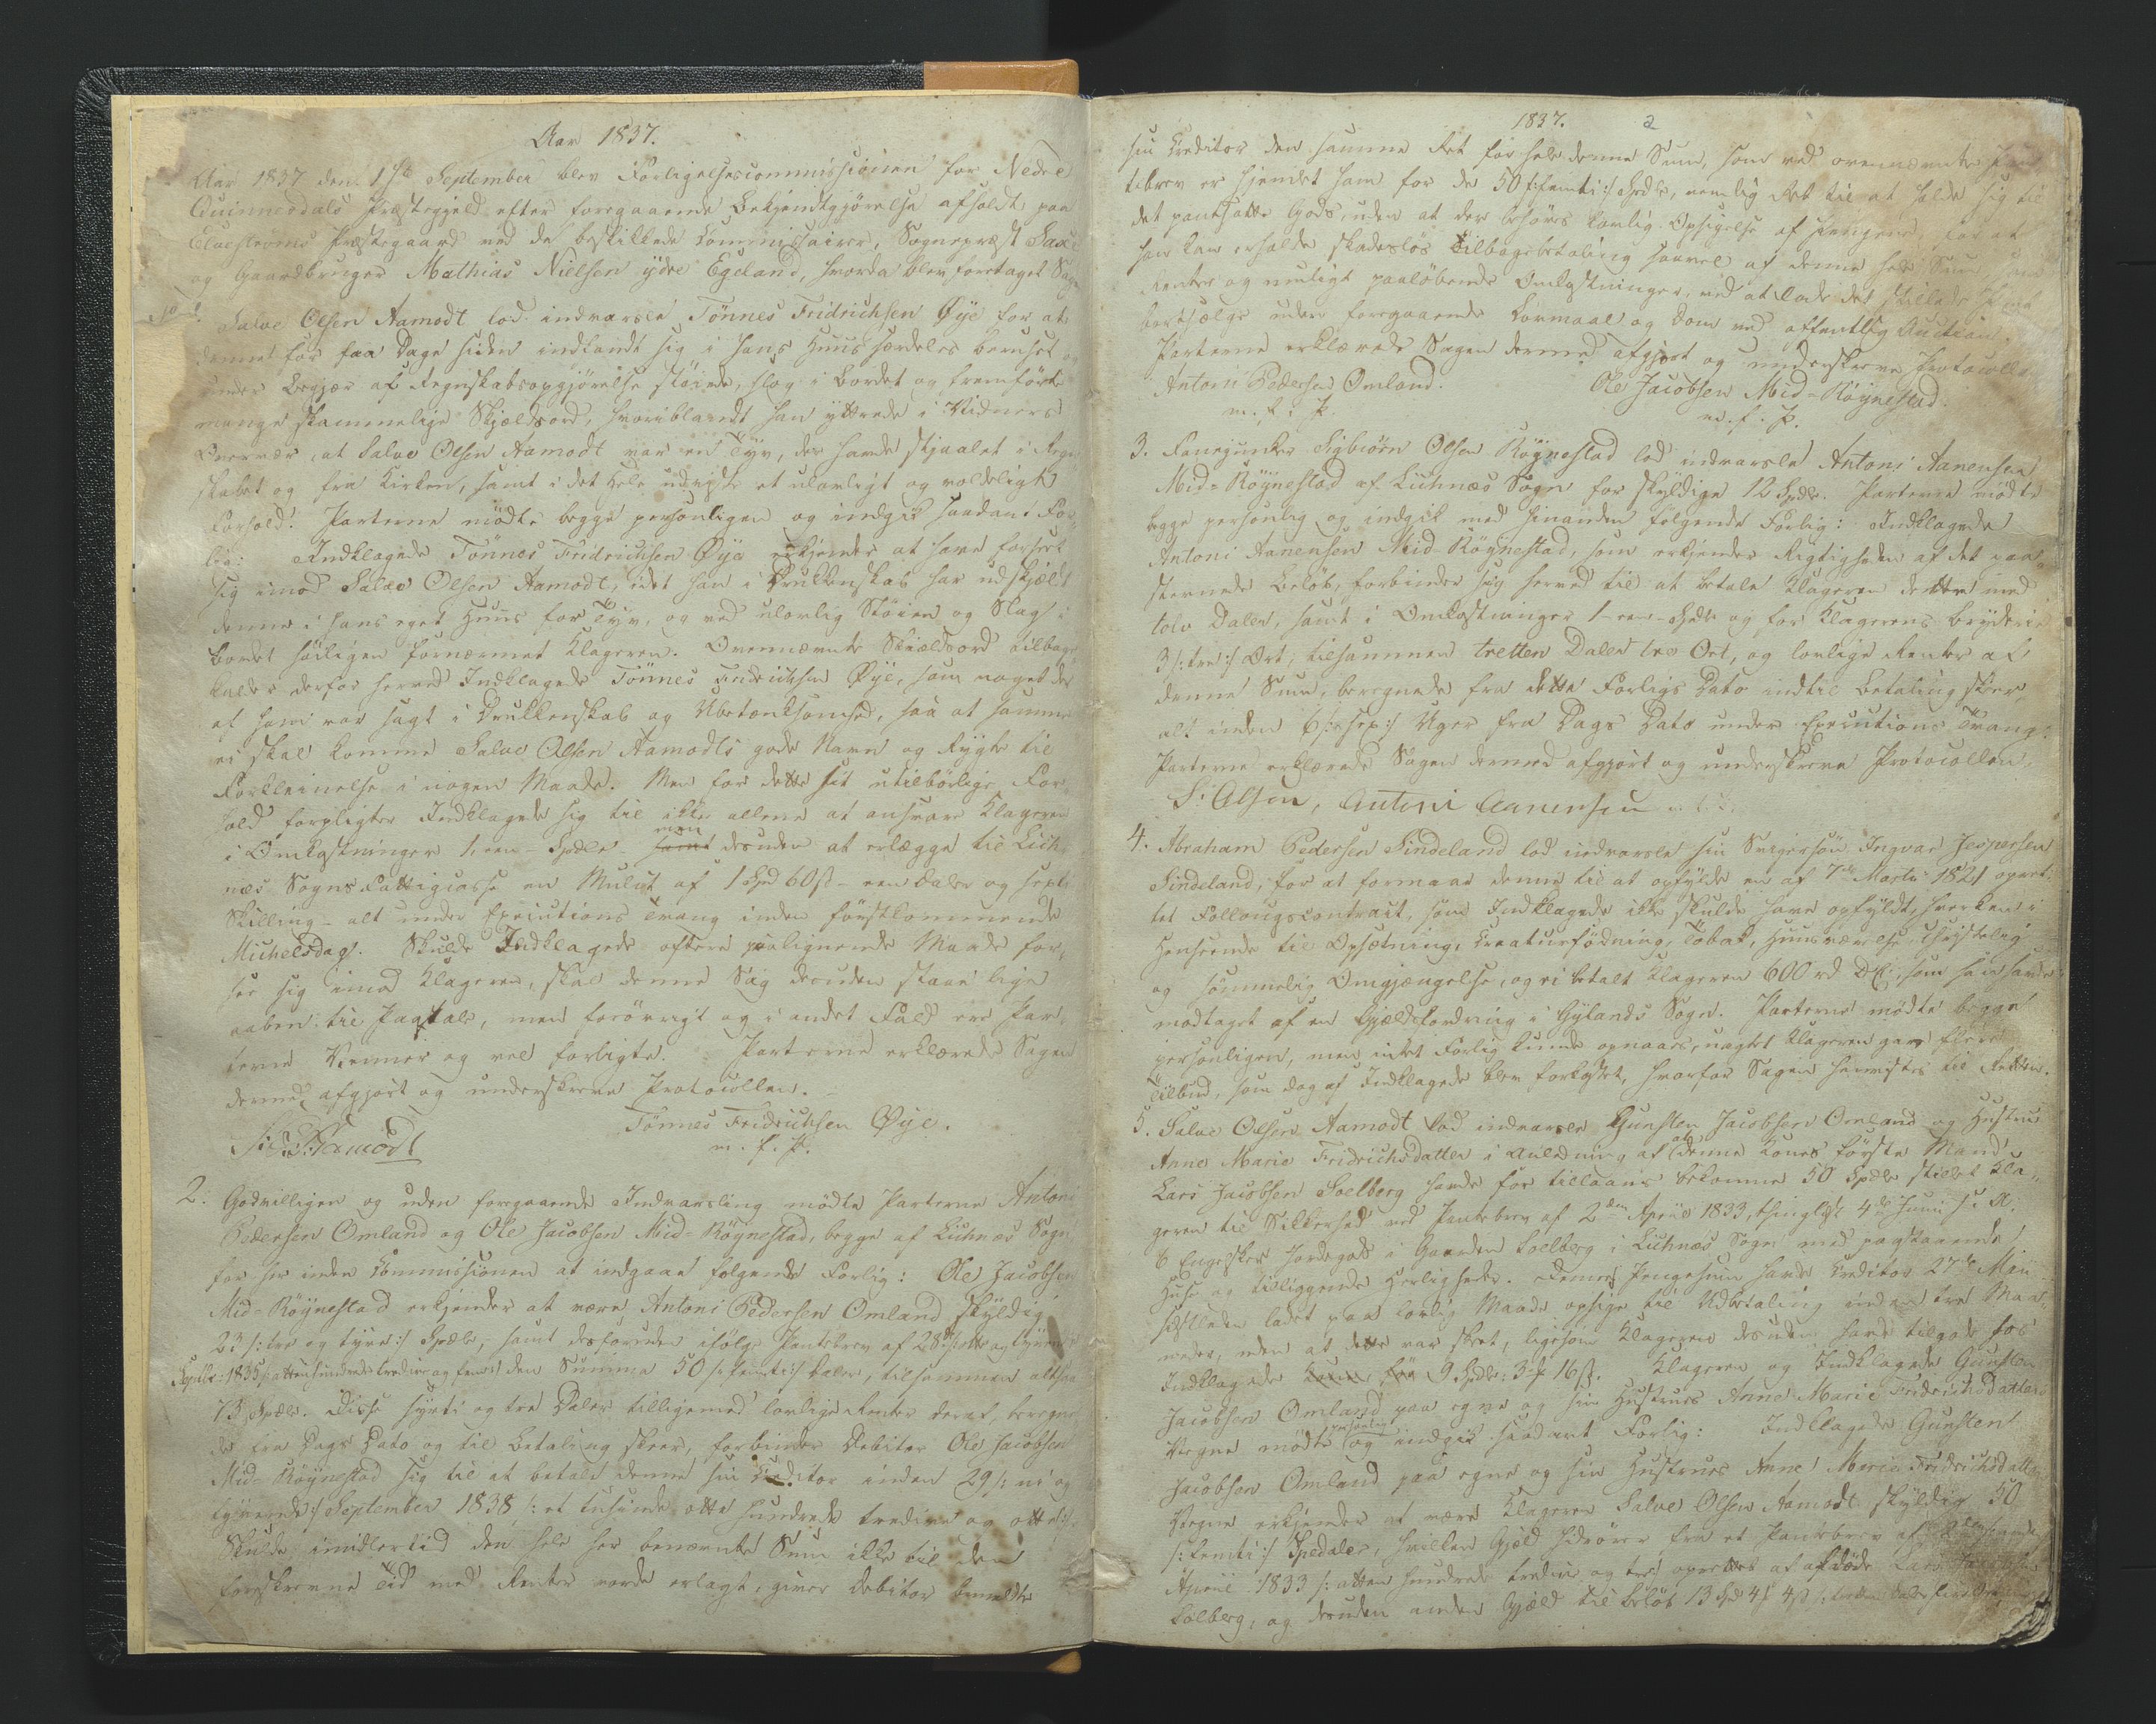 Aar 1837.
Aar 1837 den 1ste September blev Forligelsescommissionen for Nedre
Quinnesdals Præstegjeld efter foregaaende Bekjendtgjørelse afholdt paa
Præstegaard ved de beskikkede Commissairer, Sognepræst
og Gaardbruger Mathias Nielsen ydre Egeland, hvorda blev foretaget
Salve Olsen Aamodt lod indvarsle Tönnes Fridrichsen Øye for at
denne for faa Dage siden indfandt sig i hans Huus særdeles beruset og
under Begjær af Regnskabsopgjörelse støiede, slog i Bordet og fremførte
mange skammelige Skjeldsord, hvoriblandt han yttrede i Vidners
Overvær, at Salve Olsen Aamodt var en Tyv, der havde stjaalet i Regn-
skabet og fra Kirken, samt i det Hele udviste et ulovligt og voldeligt
Forhold. Parterne mödte begge personligen og indgik saadant For-
lig: Indklagede Tönnes Fridrichsen Øye erkjender at have forseet
sig imod Salve Olsen Aamodt, idet han i Drukkenskab har udskjeldt
denne i hans eget Huus for Tyv, og ved ulovlig Støien og Slag i
Bordet höiligen fornærmet Klageren. Ovennævnte Skieldsord tilbage-
kalder derfor herved Indklagede Tönnes Fridrichsen Øye, som noget der
af ham var sagt i Drukkenskab og Ubetænksomhed, saa at samme
ei skal komme Salve Olsen Aamodts gode Navn og Rygte til
Forkleinelse i nogen Maade. Men for dette sit utilbörlige For-
hold forpligter Indklagede sig til ikke allene at ansvare Klageren
i Omkostninger 1, een Spdlr men desuden at erlægge til
Sogns Fattigcasse en Mulct af 1 Spd 60 ß - een Daler og
Skilling - alt under Executions Tvang inden førstkommende
Michelsdag. Skulde Indklagede oftere paa lignende Maade for-
see sig imod Klageren, skal denne Sag desuden staae
aaben til Paatale, men forövrigt og i andet Fald ere Par-
terne Venner og vel forligte. Parterne erklærede Sagen
dermed afgjort og underskreve Protocollen.
S: O: Aamodt Tönnes Fridrichsen Øye.
m. f. P.
2. Godvilligen og uden foregaaende Indvarsling mødte Parterne Antoni
Pedersen Omland og Ole Jacobsen Mid-Röynestad, begge af Sogn
for her inden Commissionen at indgaae følgende Forlig: Ole Jacobsen
Mid-Röynestad erkjender at være Antoni Pedersen Omland skyldig
23 /: tre og tyve :/ Spdlr, samt desforuden ifølge Pantebrev af 28de /: otte og tyvende
April 1835 /: atten hundrede tredive og fem :/ den Summa 50 /: femti :/ Daler, tilsammen altsaa
73 Spdlr. Disse sytti og tre Daler tilligemed lovlige Renter deraf, beregne-
de fra Dags Dato og til Betaling skeer, forbinder Debitor Ole Jacobsen
Mid-Röynestad sig til at betale denne sin Creditor inden 29 /: ni og
tyvende :/ September 1838 /: et tusinde otte hundrede tredive og otte :/
Skulde imidlertid den hele her benævnte Sum ikke til den
foreskrevne Tid med Renter vorde erlagt, giver Debitor bemeldte
1837. 2
sin Creditor den samme Ret for hele denne Sum, som ved ovennævnte Pan-
tebrev er hjemlet ham for de 50 /: femti :/ Spdlr, nemlig Ret til at holde sig til
det pantsatte Gods, uden at der behøves lovlig Opsigelse af Pengene, for at
han kan erholde skadeslös Tilbagebetaling saavel af denne hele Sum som
Renter og muligt paalöbende Omkostninger, ved at lade det stillede Pant
bortsælge uden foregaaende Lovmaal og Dom ved offentlig Auction.
Parterne erklærede Sagen dermed afgjort og underskreve Protocollen
Antoni Pedersen Omland. Ole Jacobsen Mid-Röynestad.
m. f. P. m. f. P.
3. Fanejunker Sigbiörn Olsen Röynestad lod indvarsle Antoni Aanensen
Mid-Röynestad af Sogn for skyldige 12 Spdlr. Parterne mödte
begge personlig og indgik med hinanden følgende Forlig: Indklagede
Antoni Aanensen Mid-Röynestad, som erkjender Rigtigheden af det paa-
stevnede Beløb, forbinder sig herved til at betale Klageren dette med
tolv Daler, samt i Omkostninger 1 - een - Spdlr og for Klagerens Bryderie
3 /: tre :/ Ort, tilsammen tretten Daler tre Ort, og lovlige Renter af
denne Sum, beregnede fra dette Forligs Dato indtil Betaling skeer,
alt inden 6 /: sex :/ Uger fra Dags Dato under Executions Tvang.
Parterne erklærede Sagen dermed afgjort og underskreve Protocollen.
S: Olsen, Antoni Aanensen
4. Abraham Pedersen Sindeland lod indvarsle sin Svigersön Ingvar Jespersen
Sindeland, for at formaae denne til at opfylde en af 7de Marts 1821 opret-
tet Follougscontract, som Indklagede ikke skulde have opfyldt, hverken i
Henseende til Opsætning, Creaturfödning, Tobak, Huusværelse, Christelig
og sömmelig Omgjængelse, og ei betalt Klageren 600 rd som han havde
modtaget af en Gjeldsfordring i Gylands Sogn. Parterne mödte begge
personligen, men intet Forlig kunde opnaaes, uagtet Klageren gav flere
Tilbud, som dog af Indklagede blev forkastet, hvorfor Sagen henvistes til Retten.
5. Salve Olsen Aamodt lod indvarsle Gunsten Jacobsen Omland og Hustrue
Anne Marie Fridrichsdatter i Anledning af at denne Kones första Mand
Lars Jacobsen Soelberg havde for tillaans bekomne 50 Spdlr stillet Kla-
geren til Sikkerhed ved Pantebrev af 2den April 1833, thinglyst 4de Juni s. A.
6 Engelsker Jordegods i Gaarden Solberg i Sogn med paastaaende
Huse og tilliggende Herligheder. Denne Pengesum havde Creditor 27de
ladet paa lovlig Maade opsige til Udbetaling inden tre Maa-
neder, uden at dette var skeet, ligesom Klageren desuden havde tilgode hos
Indklagede 9 Spdlr: 3 16 ß. Klageren og Indklagede Gunsten
Jacobsen Omland paa egne og sin Hustrues Anne Marie Fridrichsdatters
Vegne mödte personlig og indgik saadant Forlig: Indklagede Gunsten
Jacobsen Omland paa egne og sin Hustrues Anne Marie Fridrichsdatters
Vegne erkjender at være Klageren Salve Olsen Aamodt skyldig 50
/: femti :/ Spdaler, hvilken Gjæld hidrörer fra et Pantebrev af
April 1833 /: atten hundrede tredive og tre :/ oprettet af afdöde Lars
Solberg, og desuden anden Gjæld til Beløb 13 Spd 4